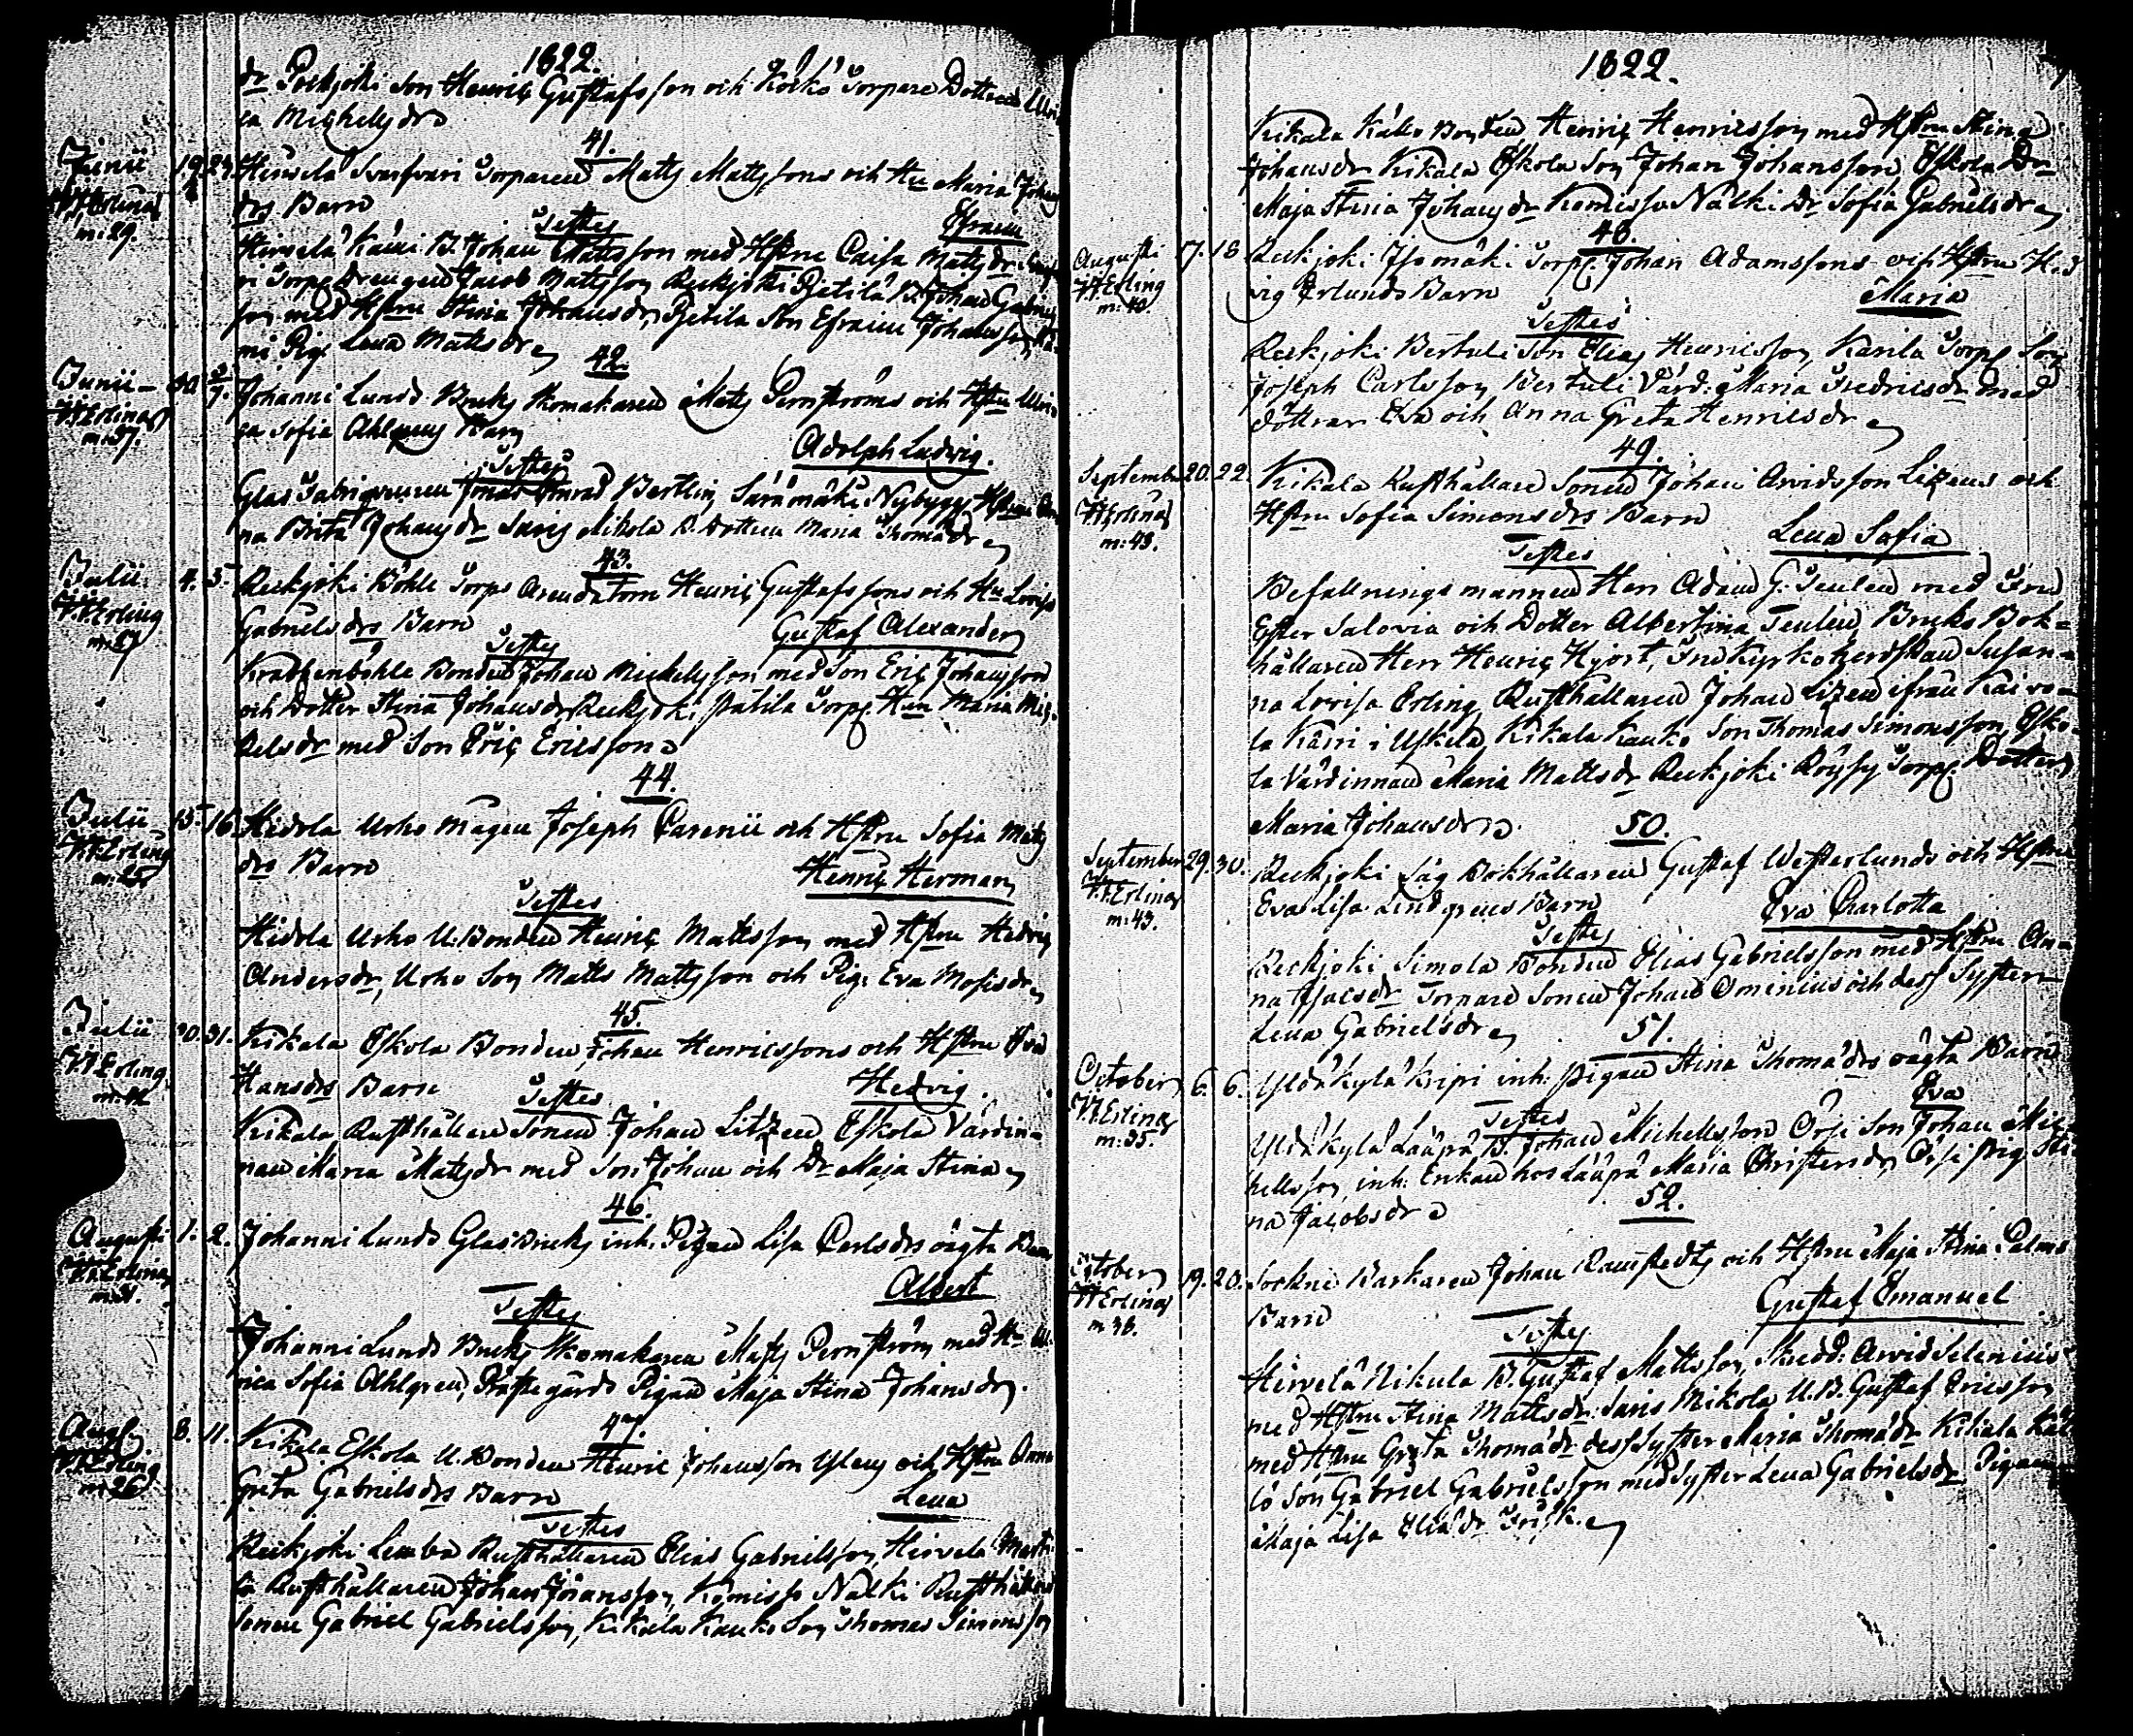 1822.
dr Poikjoki Son Henric Gustafsson och Torpare Dotteren Ulri
ca Michelsdr
41.
Junii 19. 24. Hirvelä Torparen Matts Mattssons och Hu Maria Johans
drs Barn
W. Erling
m: 29.
Testes Efraim
Hirvelä B. Johan Mattsson med Hstru Caisa Mattsdr
ri Torp. Drengen Jacob Mattsson Reckjoki Pietilä B. Johan Gabriels
son med Hstru Stina Johansdr, Pietilä Son Efraim Johansson
ni Pig. Lena Mattsdr
42.
Junii 30. 2/7. Johannislunds Bruks Skomakaren Matts Pernströms och Hstru Ulri
ca Sofia Ahlgrens Barn
W. Erling
m: 37.
Adolph Ludvig.
Testes
Glas Fabriqueuren Jonas Conrad Bertlin, Särämäki Nybygg. Hstrun An
na Brita Johansdr Saris Mikola B. Dottern Maria Thomædr
43.
Julii 4. 5. Reckjoki Böhle Torps Arendatorn Henric Gustafssons och Hu Lovisa
Gabrielsdrs Barn Gustaf Alexander
W. Erling
Testes
Krabbenböhle Bonden Johan Michelsson med Son Eric Johansson
och Dotter Stina Johansdr, Reckjoki Torp. Hun Maria Mic
kelsdr med Son Eric Ericsson
44.
Julii 15. 16. Hidola Usko Mågen Joseph Carenii och Hstru Sofia Matts
drs Barn Henric Herman
W. Erling
m: 25.
Testes
Hidola Usko U. Bonden Henric Mattsson med Hstru Hedvig
Andersdr, Usko Son Matts Mattsson och Pig. Eva Mosisdr
45.
Julii 30. 31. Kikala Eskola Bonden Johan Henricssons och Hstru Eva
Hansdrs Barn Hedvig.
W. Erling
Testes
Kikala Rusthållare Sonen Johan Litzen Eskola Värdin-
nan Maria Mattsdr med Son Johan och Dr Maja Stina
46.
Augusti 1. 2. Johannislunds Glasbruks inh. Pigan Lisa Carlsdrs oägta Barn
W. Erling
Albert
Testes
Johannislunds Bruks Skomakaren Matts Pernström med Hu Ul-
rica Sofia Ahlgren, Prästegårds Pigan Maja Stina Johansdr.
47.
Aug. 8. 11. Kikala Eskola U. Bonden Henric Johansson Ylens och Hstru Anna
Greta Gabrielsdrs Barn Lena
W. Erling
m: 26
Testes
Reckjoki Lemba Rusthållaren Elias Gabrielsson, Hirvelä Martti
lä Rusthållaren Johan Johansson, Komisso Nälki Rusthållare
Sonen Gabriel Gabrielsson, Kikala Kauko Son Thomas Simonsson
1822.
Kikala Källo Bonden Henric Henricsson med Hstru Stina
Johansdr Kikala Eskola Son Johan Johansson, Eskola Dr
Maja Stina Johansdr Komisso Nälki Dr Sofia Gabrielsdr
48.
Augusti 17. 18. Reckjoki Isomäki Torp. Johan Adamssons och Hstru Hed
vig Erlunds Barn Maria
W. Erling
m: 40.
Testes
Reckjoki Bertuli Son Elias Henricsson, Karila Torp. Son
Joseph Carlsson, Bertuli Värd: Maria Fredricsdr med
döttrar Eva och Anna Greta Henricsdr
49.
September 20. 22. Kikala Rusthållare Sonen Johan Arvidsson Lizens och
Hstru Sofia Simonsdrs Barn Lena Sofia
W. Erling
m: 43.
Testes
Befallningsmannen Herr Adam G. Teulen med Fru
Ester Salovia och Dotter Albertina Teulen Bruks Bok-
hållaren Herr Henric Hjort, Fru Kyrkoherdskan Susan-
na Lovisa Erling, Rusthållaren Johan Lizen ifrån Kaivo-
la Kärri i Uskela, Kikala Kauko Son Thomas Simonsson, Esko-
la Värdinnan Maria Mattsdr Reckjoki Röysy Torp. Dotter
Maria Johansdr.
50.
September 29. 30. Reckjoki Såg Bokhållaren Gustaf Westerlunds och Hstru
Eva Lisa Lindgrens Barn Eva Charlotta
W. Erling
m: 43.
Testes
Reckjoki Simola Bonden Elias Gabrielsson med Hstru An-
na Isacsdr Torpare Sonen Johan Ominius och dess Syster
Lena Gabrielsdr
51.
October 6. 6. Yldkylä Kripi inh. pigan Stina Thomædrs oägta Barn
Eva
W. Erling
m: 35.
Testes
Yldkylä Laüpä B. Johan Michelsson Orsi Son Johan Mic-
helsson, inh: Enkan hos Laüpä Maria Christersdr, Orsi pig. Sti-
na Jacobsdr
52.
October 19. 20. Sockne Barkaren Johan Ramstedts och Hstru Maja Stina Palms
Barn Gustaf Emanuel
W. Erling
m 38.
Testes
Hirvelä Nikula B. Gustaf Mattsson, Skredd: Arvid Selenius
med Hstru Stina Mattsdr. Saris Mikola U. B. Gustaf Ericsson
med Hstru Greta Thomædr dess Syster Maria Thomædr Kikala Käl-
lö Son Gabriel Gabrielsson med Syster Lena Gabrielsdr Pigan
Maja Lisa Eliædr Frisk.